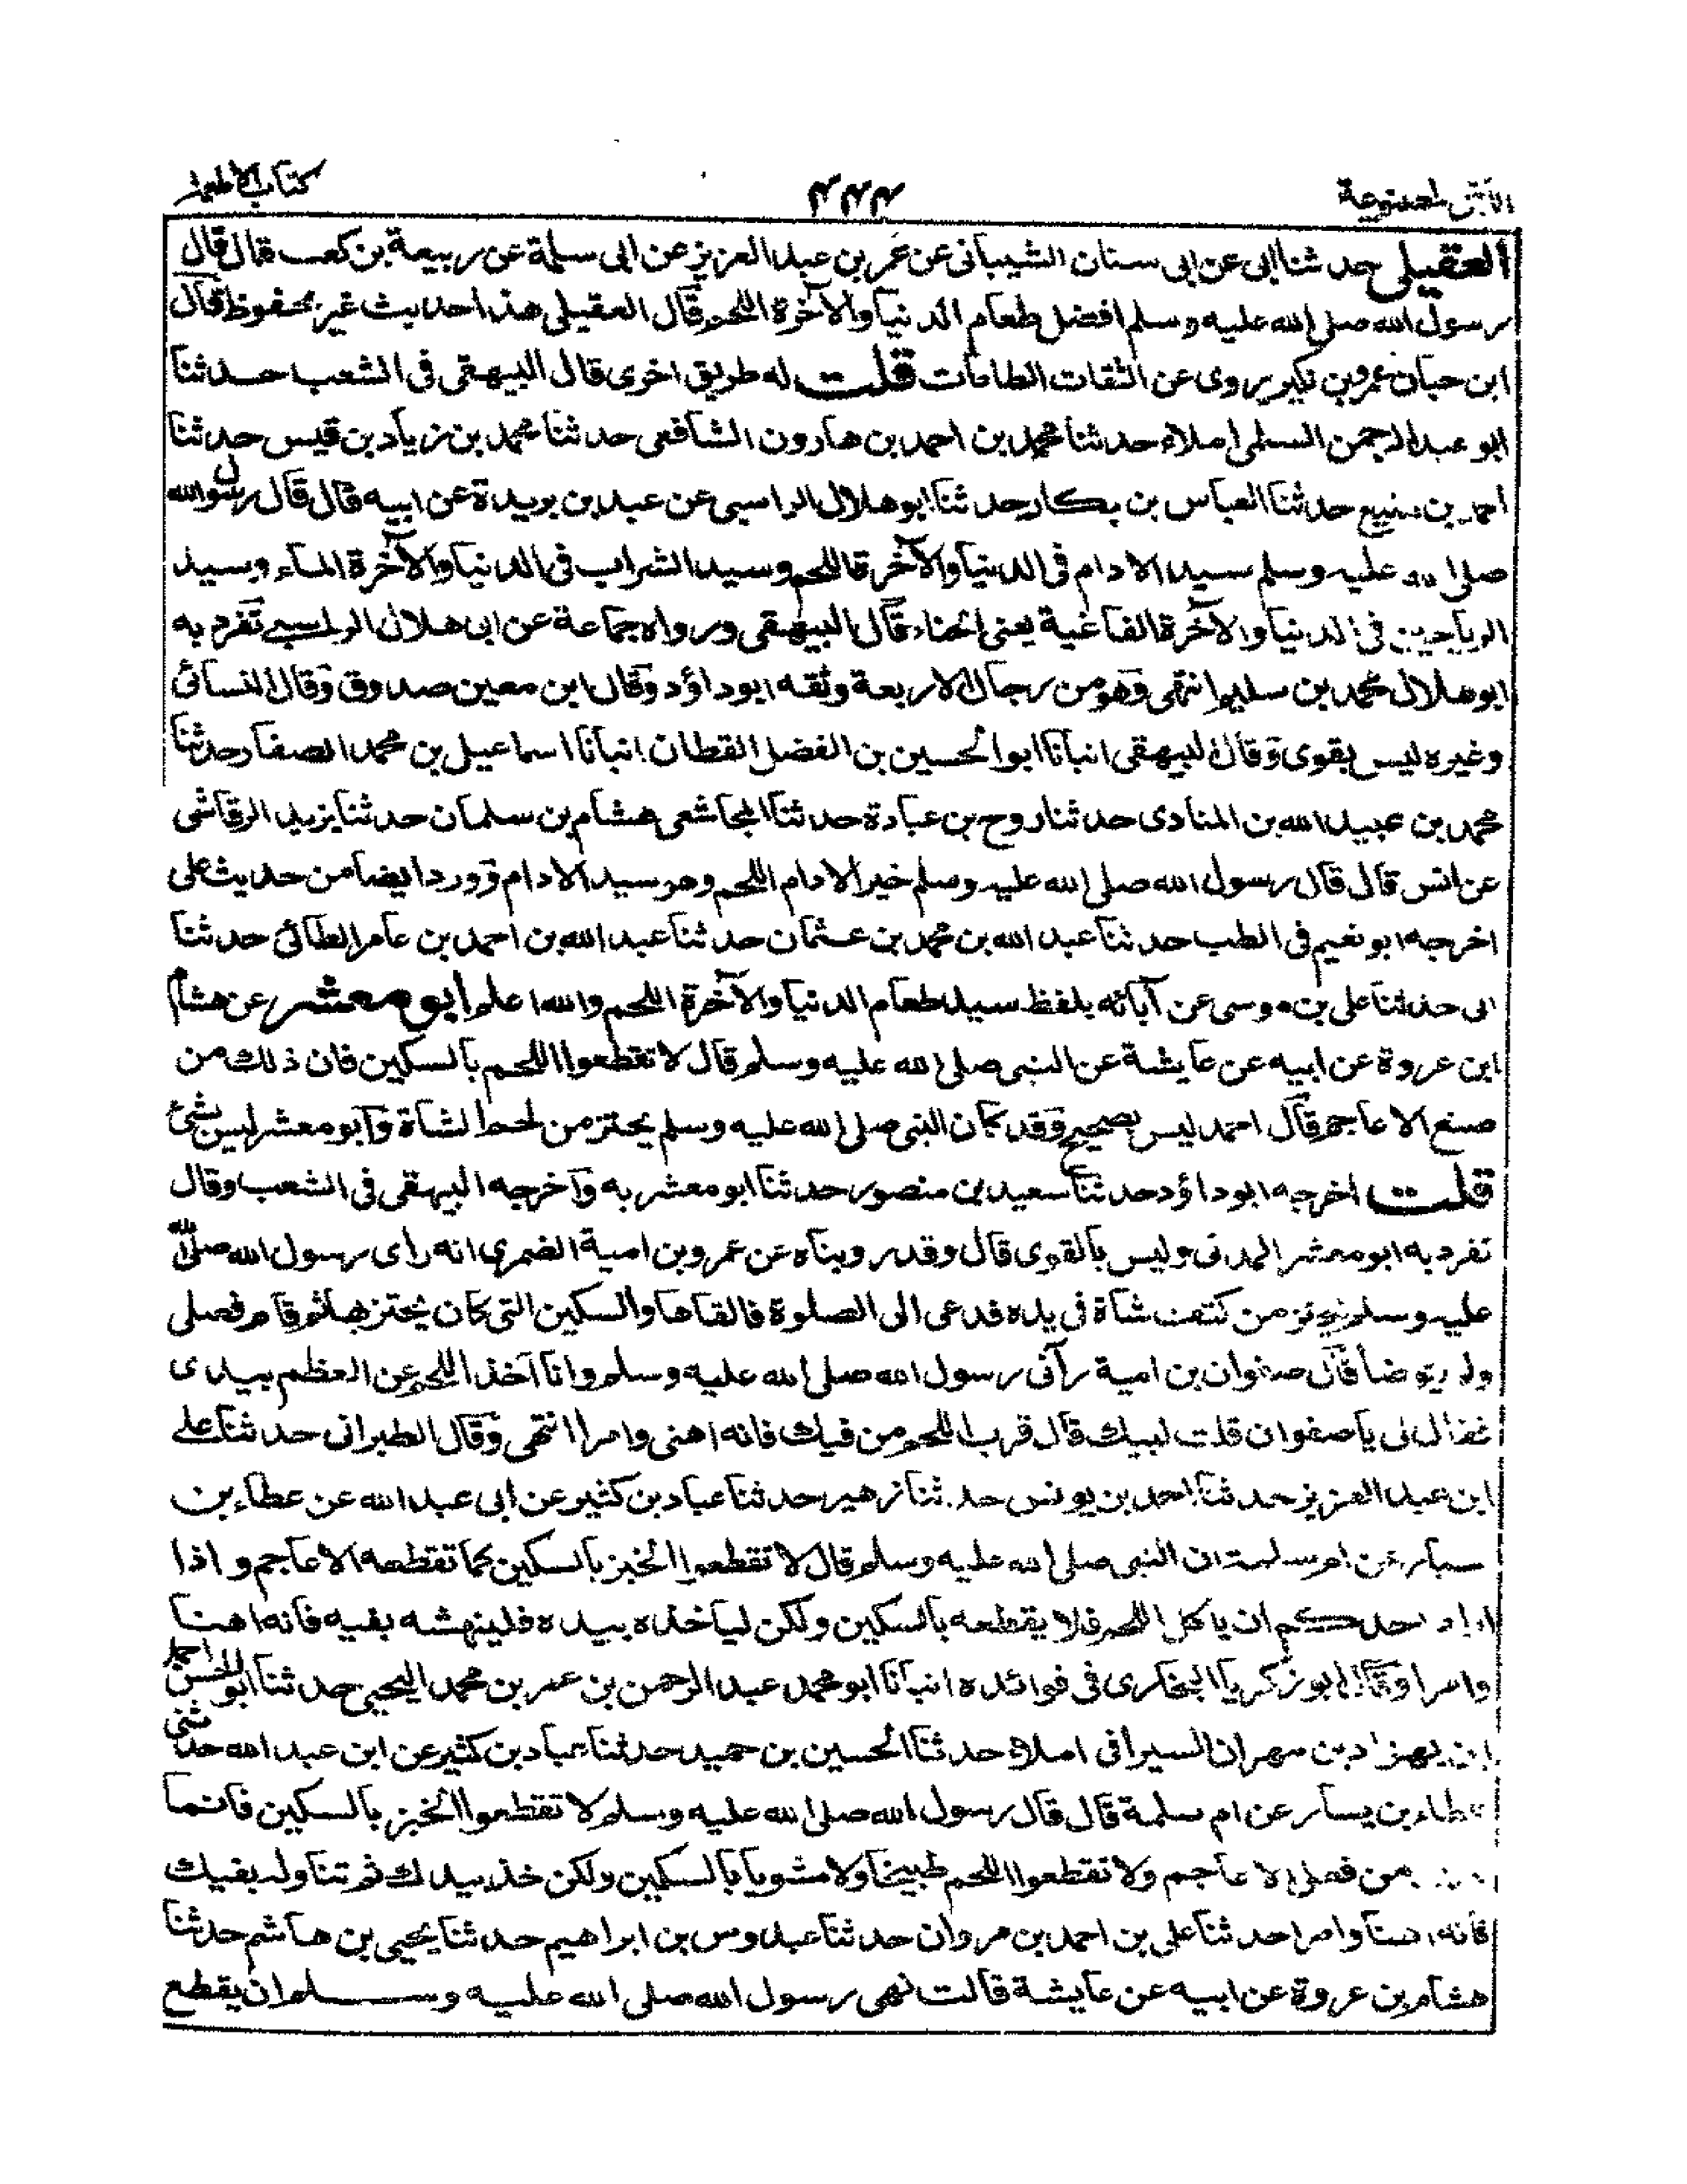 كتاب الاطعمة
العقيلى حدثنا ابى عن ابى سنان الشيبانى عن عمر بن عبد العزيز عن ابى سلمة عن ربيعة بن كعب قال قال
رسول الله صلى الله عليه وسلم افضل طعام الدنيا والآخرة اللحم قال العقيلى هذا حديث غير محفوظ قال
ابن حبان عمرو بن بكير يروى عن الثقات الطامات قلت له طريق اخرى قال البيهقى فى الشعب حدثنا
ابو عبد الرحمن السلمى املاء حدثنا محمد بن احمد بن هارون الشافعى حدثنا محمد بن زياد بن قيس حدثنا
احمد بن منيع حدثنا العباس بن بكار حدثنا ابو هلال الراسبى عن عبد بن بريدة عن ابيه قال قال رسول الله
صلى الله عليه وسلم سيد الادام فى الدنيا والآخرة اللحم وسيد الشراب فى الدنيا والآخرة الماء وسيد
الرياحين فى الدنيا والآخرة الفاغية يعنى الحناء قال البيهقى ورواه جماعة عن ابى هلال الراسبى تفرد به
ابو هلال محمد بن سليم انتهى وهو من رجال الاربعة وثقه ابو داؤد وقال ابن معين صدوق وقال النسائى
وغيره ليس بقوى وقال البيهقى انبانا ابو الحسين بن الفضل القطان انبانا اسماعيل بن محمد الصفار حدثنا
محمد بن عبيد الله بن المنادى حدثنا روح بن عبادة حدثنا المجاشعى هشام بن سلمان حدثنا يزيد الرقاشى
عن انس قال قال رسول الله صلى الله عليه وسلم خير الادام اللحم وهو سيد الادام وورد ايضا من حديث على
اخرجه ابو نعيم فى الطب حدثنا عبد الله بن محمد بن عثمان حدثنا عبد الله بن احمد بن عامر الطائى حدثنا
ابى حدثنا على بن موسى عن آبائه بلفظ سيد طعام الدنيا والآخرة اللحم والله اعلم ابو معشر عن هشام
ابن عروة عن ابيه عن عايشة عن النبى صلى الله عليه وسلم قال لا تقطعوا اللحم بالسكين فان ذلك من
صنع الاعاجم قال احمد ليس بصحيح وقد كان النبى صلى الله عليه وسلم يحتز من لحم الشاة وابو معشر ليس بشئ
قلت اخرجه ابو داؤد حدثنا سعيد بن منصور حدثنا ابو معشر به واخرجه البيهقى فى الشعب وقال
تفرد به ابو معشر المدنى وليس بالقوى قال وقد روينا عن عمرو بن امية الضمرى انه راى رسول الله صلى الله
عليه وسلم يحتز من كتف شاة فى يده فدعى الى الصلوة فالقاها والسكين التى كان يحتز بها ثم قام فصلى
ولم يتوضا قال صفوان بن امية رآنى رسول الله صلى الله عليه وسلم وانا آخذ اللحم عن العظم بيدى
فقال لى يا صفوان قلت لبيك قال قرب اللحم من فيك فانه اهنى وامرا انتهى وقال الطبرانى حدثنا على
ابن عبد العزيز حدثنا احمد بن يونس حدثنا زهير حدثنا عباد بن كثير عن ابى عبد الله عن عطاء بن
يسار عن ام سلمة ان النبى صلى الله عليه وسلم قال لا تقطعوا الخبز بالسكين كما تقطعه الاعاجم واذا
اراد احدكم ان ياكل اللحم فلا يقطعه بالسكين ولكن لياخذه بيده فلينهشه بفيه فانه اهنا
وامرا وقال ابو زكريا البخارى فى فوائده انبانا ابو محمد عبد الرحمن بن عمر بن محمد اليحيى حدثنا ابو الحسن احمد
ابن بهزاد بن مهران السيرافى املاء حدثنا الحسين بن حميد حدثنا عباد بن كثير عن ابن عبد الله حدثنى
عطاء بن يسار عن ام سلمة قال قال رسول الله صلى الله عليه وسلم لا تقطعوا الخبز بالسكين فانما
من فعل الاعاجم ولا تقطعوا اللحم طبيخا ولا مشويا بالسكين ولكن خذ بيدك ثم تناوله بفيك
فانه اهنا وامرا حدثنا على بن احمد بن مروان حدثنا عبدوس بن ابراهيم حدثنا يحيى بن هاشم حدثنا
هشام بن عروة عن ابيه عن عايشة قالت نهى رسول الله صلى الله عليه وسلم ان يقطع